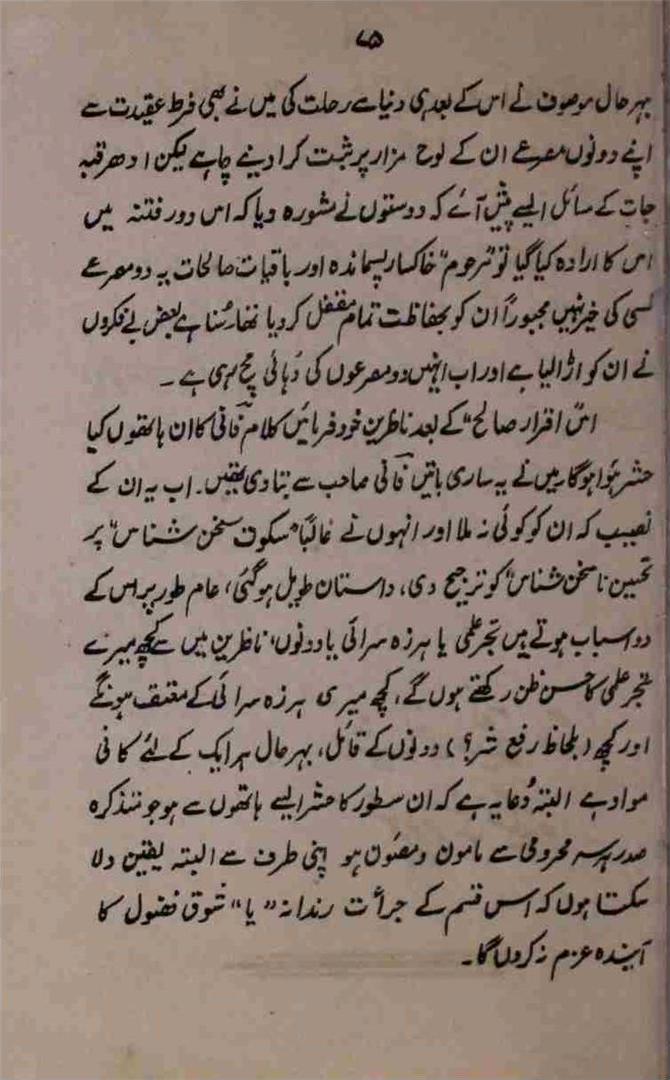 ۷۵
بہرحال موصوف نے اس کے بعد ہی دنیا سے رحلت کی میں نے بھی فرط عقیدت سے
اپنے دونوں مصرعے ان کے لوح مزار پر ثبت کرا دینے چاہے لیکن ادھر قبہ
جات کے مسائل ایسے پیش آئے کہ دوستوں نے مشورہ دیا کہ اس دور فتنہ میں
اس کا ارادہ کیا گیا تو "مرحوم" خاکسار پسماندہ اور باقیات صالحات یہ دو مصرعے
کسی کی خیر نہیں مجبوراً ان کو بحفاظت تمام مقفل کر دیا تھا۔ سُنا ہے بعض بے فکروں
نے ان کو اڑا لیا ہے اور اب انہیں دو مصرعوں کی دُہائی مچ رہی ہے۔
اس "اقرار صالح" کے بعد ناظرین خود فرمائیں کلام فانی کا ان ہاتھوں کیا
حشر ہوا ہوگا۔ میں نے یہ ساری باتیں فانی صاحب سے بتا دی تھیں۔ اب یہ ان کے
نصیب کہ ان کو کوئی نہ ملا اور انہوں نے غالباً "سکوت سخن شناس" پر
تحسین ناسخن شناس" کو ترجیح دی، داستان طویل ہو گئی، عام طور پر اس کے
دو اسباب ہوتے ہیں تبحر علمی یا ہرزہ سرائی یا دونوں، ناظرین میں سے کچھ میرے
تبحر علمی کا حسن ظن رکھتے ہوں گے، کچھ میری ہرزہ سرائی کے معتقد ہونگے
اور کچھ (بلحاظ رفع شر؟) دونوں کے قائل، بہرحال ہر ایک کے لئے کافی
مواد ہے البتہ دُعا یہ ہے کہ ان سطور کا حشر ایسے ہاتھوں سے ہو جو متذکرہ
صدر ہر سہ محرومی سے مامون و مصئون ہو اپنی طرف سے البتہ یقین دلا
سکتا ہوں کہ اس قسم کے جرأت رندانہ" یا "شوق فضول کا
آیندہ عزم نہ کروں گا۔